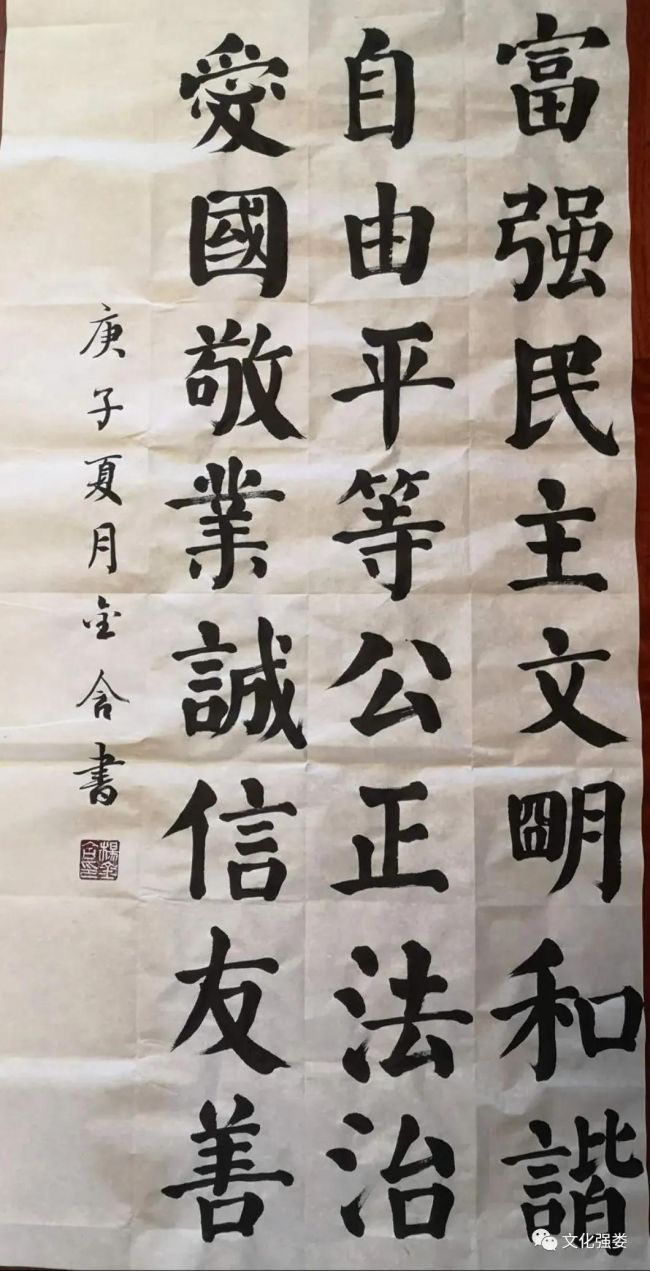 富强民主文朙和諧
自由平等公正法治
愛國敬業誠信友善
庚子夏月金含書
文化强娄